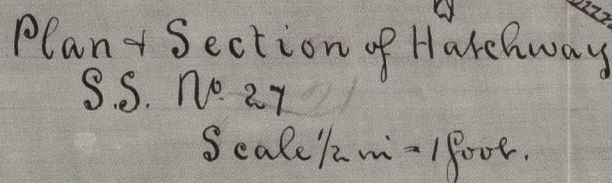 Plan & Section of Hatchway
S.S. No. 27
Scale 1/2 in = 1 foot.